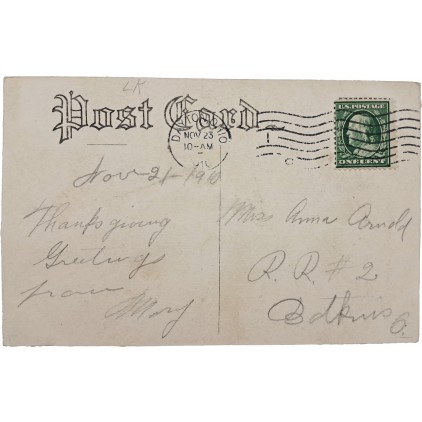 LK
Post Card
DAYTON, OHIO
NOV 23
10-AM
1910
U.S. POSTAGE
ONE CENT
Nov 21-1910
Thanksgiving
Greetings
from
Mary
Miss Anna Arnold
R. R. # 2
Botkins
O.